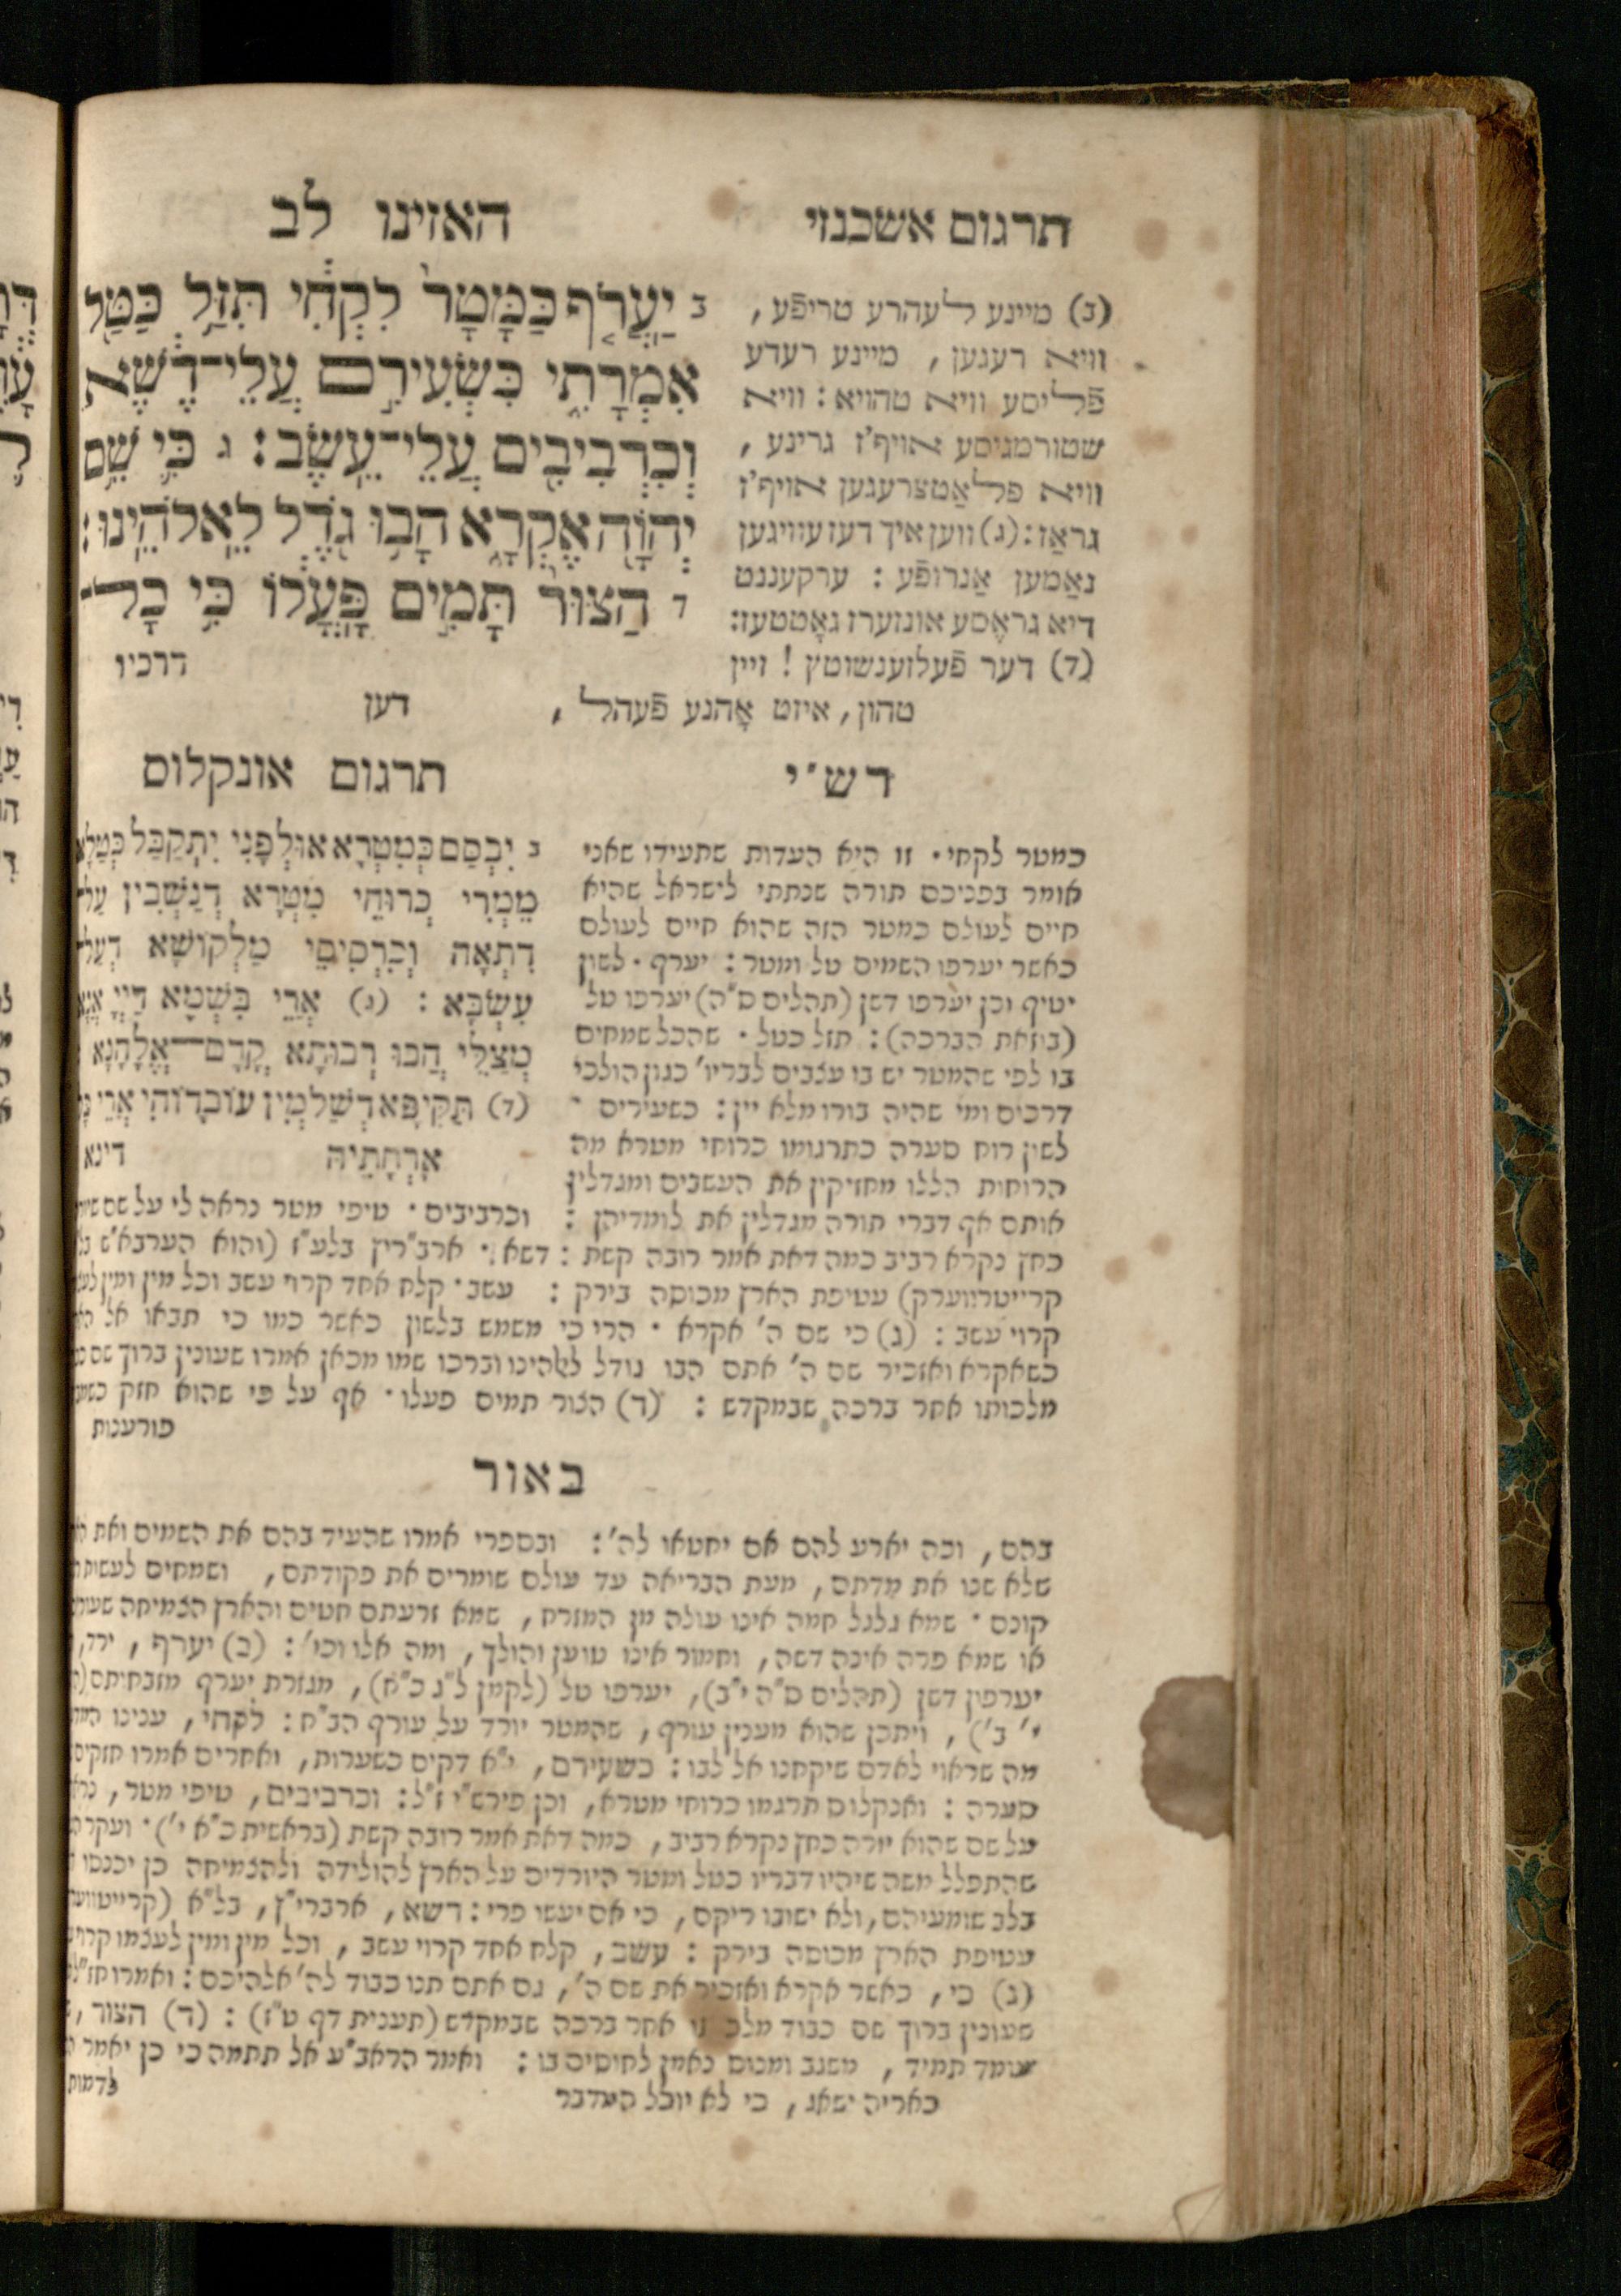 תרגום אשכנזי
האזינו לב
(ב) מיינע לעהרע טריפֿע,
וויא רעגען, מיינע רעדע
פֿליסע וויא טהויא: וויא
שטורמגיסע אויף'ז גרינע,
וויא פלאַטצרעגען אויף'ז
גראַז: (ג) ווען איך דעז עוויגען
נאַמען אַנרופֿע: ערקעננט
דיא גראָסע אונזערז גאָטטעז:
(ד) דער פֿעלזענשוטץ! זיין
טהון, איזט אָהנע פֿעהל,
דען
ב יַעֲרֹף כַּמָּטָר לִקְחִי תִּזַּל כַּטַּל
אִמְרָתִי כִּשְׂעִירִם עֲלֵי־דֶשֶׁא
וְכִרְבִיבִים עֲלֵי־עֵשֶׂב: ג כִּי שֵׁם
יְהוָה אֶקְרָא הָבוּ גֹדֶל לֵאלֹהֵינוּ:
ד הַצּוּר תָּמִים פָּעֳלוֹ כִּי כָל־
דרכיו
רש"י
כמטר לקחי. זו היא העדות שתעידו שאני
אומר בפניכם תורה שנתתי לישראל שהיא
חיים לעולם כמטר הזה שהוא חיים לעולם
כאשר יערפו השמים טל ומטר: יערף. לשון
יטיף וכן יערפו דשן (תהלים ס"ה) יערפו טל
(בוזאת הברכה): תזל כטל. שהכל שמחים
בו לפי שהמטר יש בו עצבים לבריו' כגון הולכי
דרכים ומי שהיה בורו מלא יין: כשעירים.
לשון רוח סערה כתרגומו כרוחי מטרא מה
הרוחות הללו מחזיקין את העשבים ומגדלין
אותם אף דברי תורה מגדלין את לומדיהן: וכרביבים. טיפי מטר נראה לי על שם
כחץ נקרא רביב כמה דאת אמר רובה קשת: דשא. ארב"ריץ בלע"ז (והוא הערבא"ש
קרייטרווערק) עטיפת הארץ מכוסה בירק: עשב. קלח אחד קרוי עשב וכל מין ומין
קרוי עשב: (ג) כי שם ה' אקרא. הרי כי משמש בלשון כאשר כמו כי תבאו אל
כשאקרא ואזכיר שם ה' אתם הבו גודל לאלהינו וברכו שמו מכאן אמרו שעונין ברוך שם
מלכותו אחר ברכה שבמקדש: (ד) הצור תמים פעלו. אף על פי שהוא חזק
פורענות
תרגום אונקלוס
ב יִבְסַם כְּמִטְרָא אוּלְפָנִי יִתְקַבַּל כְּטַלָּא
מֵמְרִי כְּרוּחֵי מִטְרָא דְנַשְׁבִין עַל
דִתְאָה וְכִרְסִיסֵי מַלְקוֹשָׁא דְעַל
עִשְׂבָּא: (ג) אֲרֵי בִּשְׁמָא דַיְיָ אֲנָא
מְצַלֵּי הֲבוּ רְבוּתָא קֳדָם־אֱלָהָנָא
(ד) תַּקִּיפָא דְשַׁלְמִין עוֹבָדוֹהִי אֲרֵי
אָרְחָתֵיהּ
דינא
באור
בהם, ובה יארע להם אם יחטאו לה': ובספרי אמרו שהעיד בהם את השמים ואת
שלא שנו את מדתם, מעת הבריאה עד עולם שומרים את פקודתם, ושמחים לעשות
קונם. שמא גלגל חמה אינו עולה מן המזרח, שמא זרעתם חטים והארץ הצמיחה
או שמא פרה אינה דשה, וחמור אינו טוען והולך, ומה אלו וכו': (ב) יערף, ירד,
יערפון דשן (תהלים ס"ה י"ב), יערפו טל (לקמן ל"ג כ"ח), מגזרת יערף מזבחותם
י' ב'), ויתכן שהוא מענין עורף, שהמטר יורד על עורף הב"ח: לקחי, ענינו
מה שראוי לאדם שיקחנו אל לבו: כשעירם, י"א דקים כשערות, ואחרים אמרו
סערה: ואנקלוס תרגמו כרוחי מטרא, וכן פירש"י ז"ל: וכרביבים, טיפי מטר,
על שם שהוא יורה כחץ נקרא רביב, כמה דאת אמר רובה קשת (בראשית כ"א י'). ועקר
שהתפלל משה שיהיו דבריו כטל ומטר היורדים על הארץ להולידה ולהצמיחה כן יכנסו
בלב שומעיהם, ולא ישובו ריקם, כי אם יעשו פרי: דשא, ארברי"ץ, בל"א
עטיפת הארץ מכוסה בירק: עשב, קלח אחד קרוי עשב, וכל מין ומין לעצמו קרוי
(ג) כי, כאשר אקרא ואזכיר את שם ה', גם אתם תנו כבוד לה' אלהיכם: ואמרו חז"ל
שעונין ברוך שם כבוד אחר ברכה שבמקדש (תענית דף ט"ז): (ד) הצור,
עומד תמיד, משגב ומנוס נאמן לחוסים בו: ואמר הראב"ע אל תתמה כי כן יאמר
כאריה ישאג, כי לא יוכל המדבר
לדמות